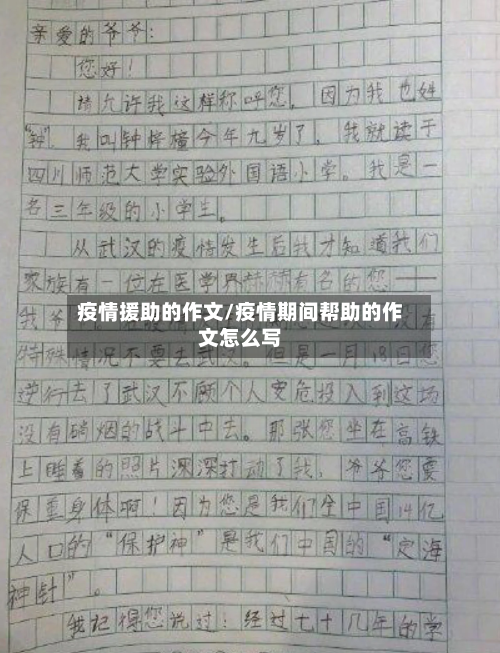 亲爱的爷爷:
您好!
请允许我这样称呼您,因为我也姓
"钟",我叫钟梓橦今年九岁了,我就读于
四川师范大学实验外国语小学。我是一
名三年级的小学生。
从武汉的疫情发生后我才知道我们
家族有一位在医学界赫赫有名的您——
疫情援助的作文/疫情期间帮助的作
文怎么写
特殊情况不要去武汉。但是一月18日您
逆行去了武汉不顾个人安危投入到这场
没有硝烟的战斗中去。那张您坐在高铁
上睡着的照片深深打动了我,爷爷您要
保重身体啊!因为您是我们全中国14亿
人口的"保护神"是我们中国的"定海
神针"。
我记得您说过:经过七十几年的学